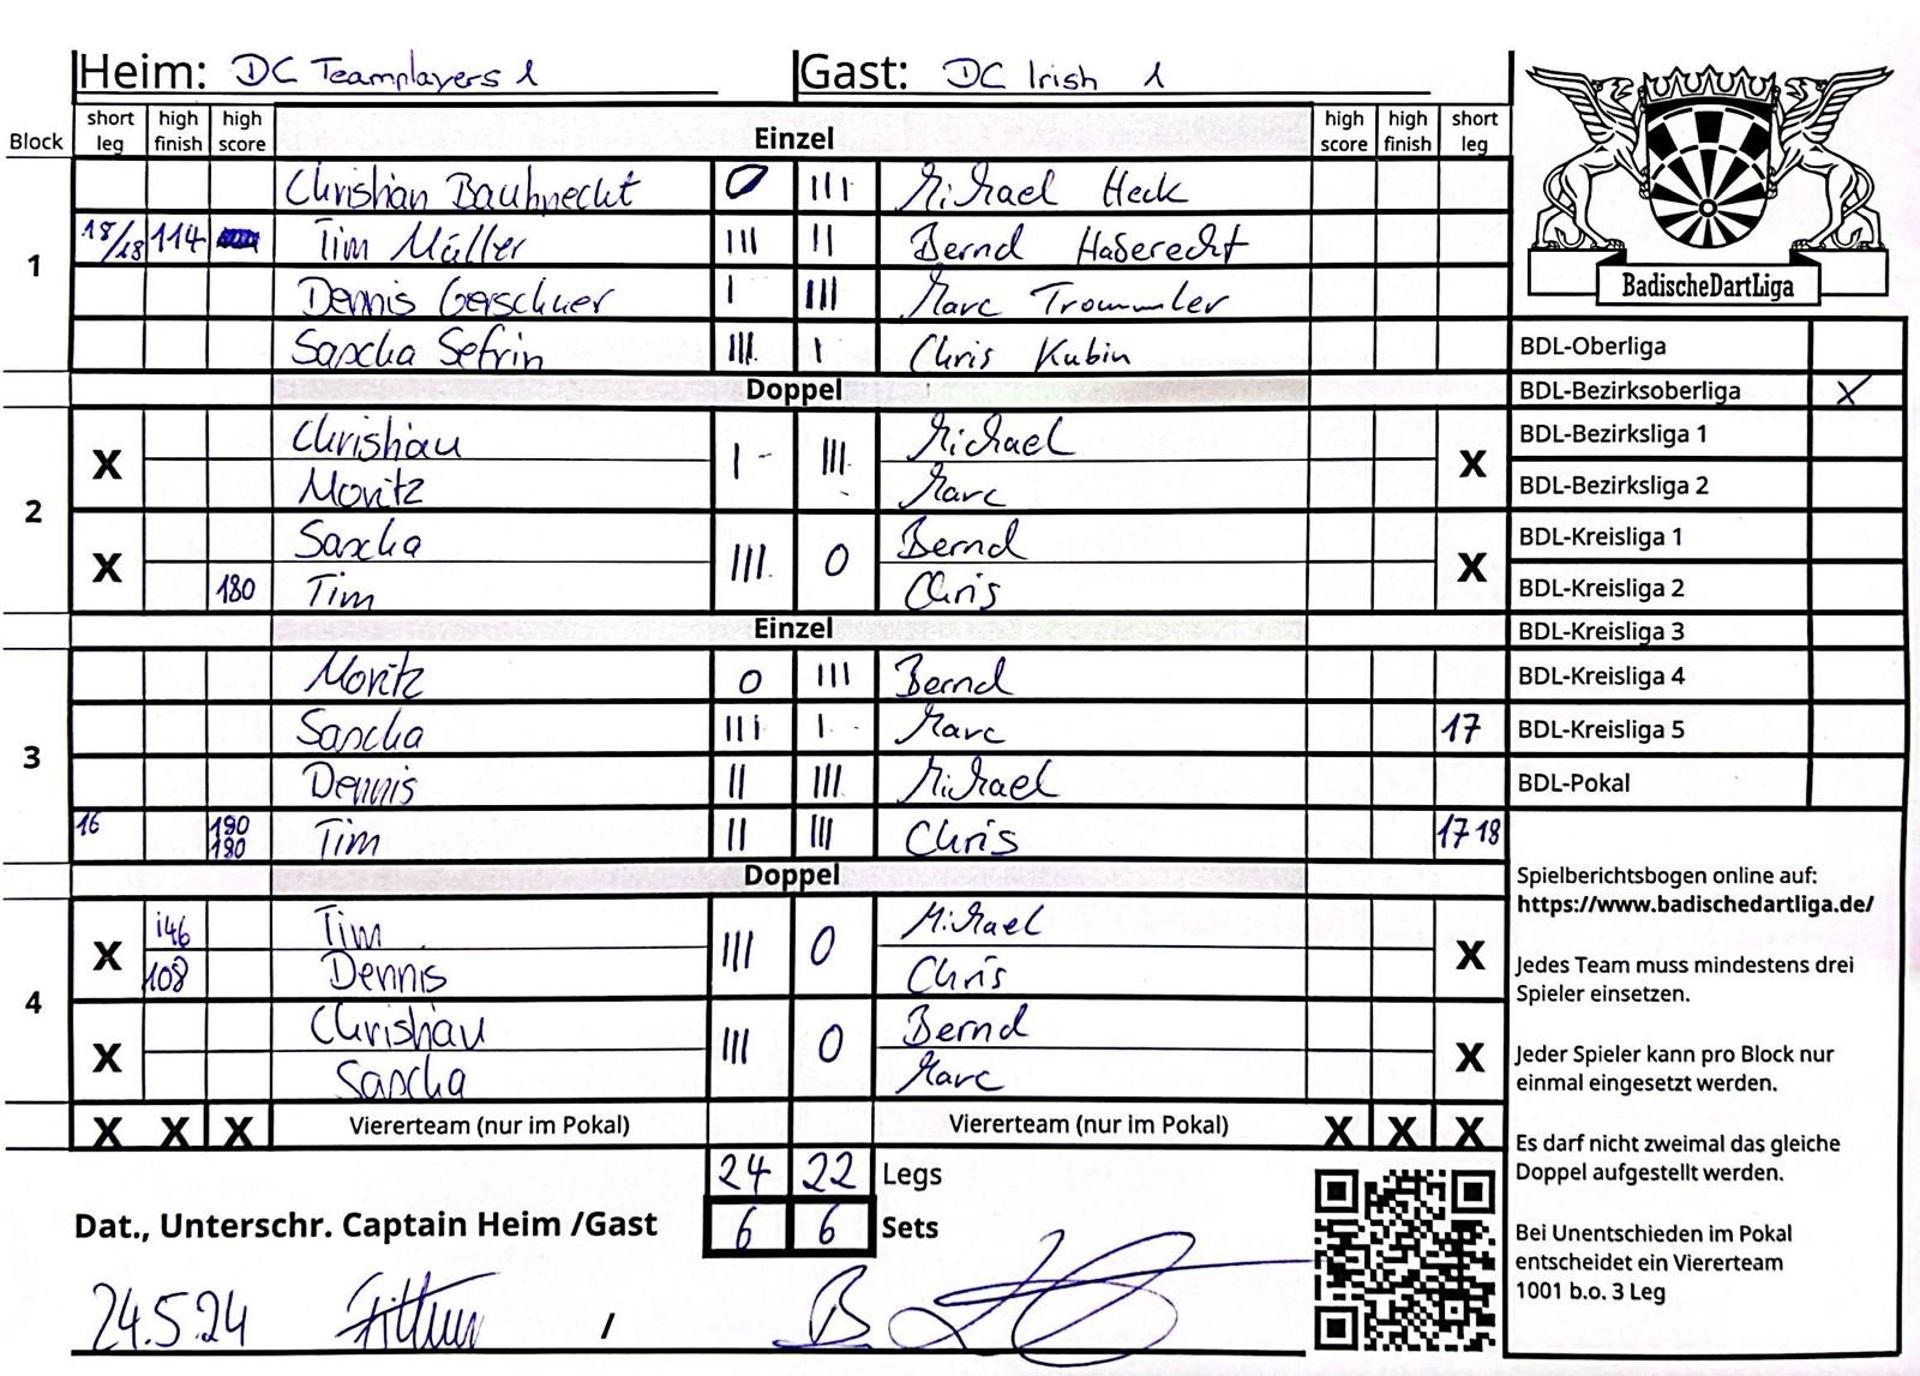 Heim: DC Teamplayers 1 Gast: DC Irish 1
Block short leg high finish high score Einzel high score high finish short leg
1
Christian Bauknecht 0 III Michael Heck
18/18 114 Tim Müller III II Bernd Haberecht
Dennis Gerschner I III Marc Trommler
Sascha Sefrin III I Chris Kubin
Doppel
2
X Christian I III Michael X
Moritz Marc
X Sascha III 0 Bernd X
180 Tim Chris
Einzel
3
Moritz 0 III Bernd
Sascha III I Marc 17
Dennis II III Michael
16 180 180 Tim II III Chris 17 18
Doppel
4
X 146 Tim III 0 Michael X
108 Dennis Chris
X Christian III 0 Bernd X
Sascha Marc
X X X Viererteam (nur im Pokal) Viererteam (nur im Pokal) X X X
24 22 Legs
Dat., Unterschr. Captain Heim /Gast 6 6 Sets
24.5.24 /
BadischeDartLiga
BDL-Oberliga
BDL-Bezirksoberliga X
BDL-Bezirksliga 1
BDL-Bezirksliga 2
BDL-Kreisliga 1
BDL-Kreisliga 2
BDL-Kreisliga 3
BDL-Kreisliga 4
BDL-Kreisliga 5
BDL-Pokal
Spielberichtsbogen online auf:
https://www.badischedartliga.de/
Jedes Team muss mindestens drei
Spieler einsetzen.
Jeder Spieler kann pro Block nur
einmal eingesetzt werden.
Es darf nicht zweimal das gleiche
Doppel aufgestellt werden.
Bei Unentschieden im Pokal
entscheidet ein Viererteam
1001 b.o. 3 Leg